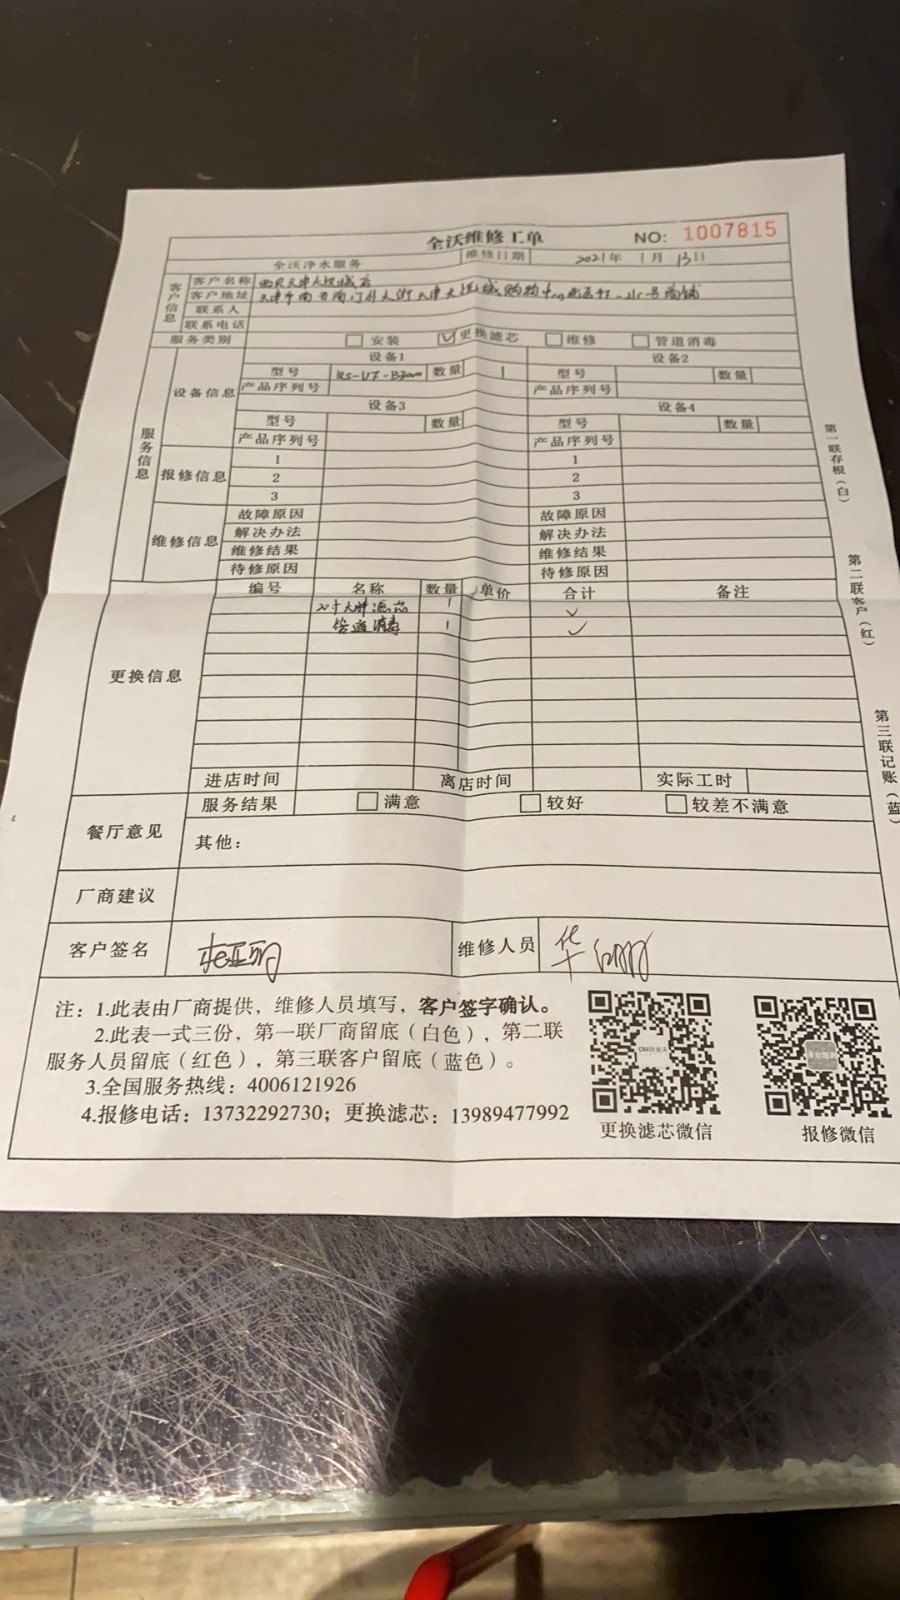 全沃维修工单 NO: 1007815
全沃净水服务 维修日期 2021年 1月 13日
客户信息
客户名称 西贝天津大悦城店
客户地址 天津市南开南门外大街天津大悦城购物中心 号商铺
联系人
联系电话
服务类别 安装 更换滤芯 维修 管道消毒
服务信息
设备信息
设备1 设备2
型号 数量 1 型号 数量
产品序列号 产品序列号
设备3 设备4
型号 数量 型号 数量
产品序列号 产品序列号
报修信息
1 1
2 2
3 3
维修信息
故障原因 故障原因
解决办法 解决办法
维修结果 维修结果
待修原因 待修原因
更换信息
编号 名称 数量 单价 合计 备注
20寸大胖滤芯 1 ✓
管道消毒 1 ✓
进店时间 离店时间 实际工时
餐厅意见
服务结果 满意 较好 较差不满意
其他：
厂商建议
客户签名 维修人员 华
注：1.此表由厂商提供，维修人员填写，客户签字确认。
2.此表一式三份，第一联厂商留底（白色），第二联
服务人员留底（红色），第三联客户留底（蓝色）。
3.全国服务热线：4006121926
4.报修电话：13732292730；更换滤芯：13989477992
更换滤芯微信 报修微信
第一联存根（白）
第二联客户（红）
第三联记账（蓝）